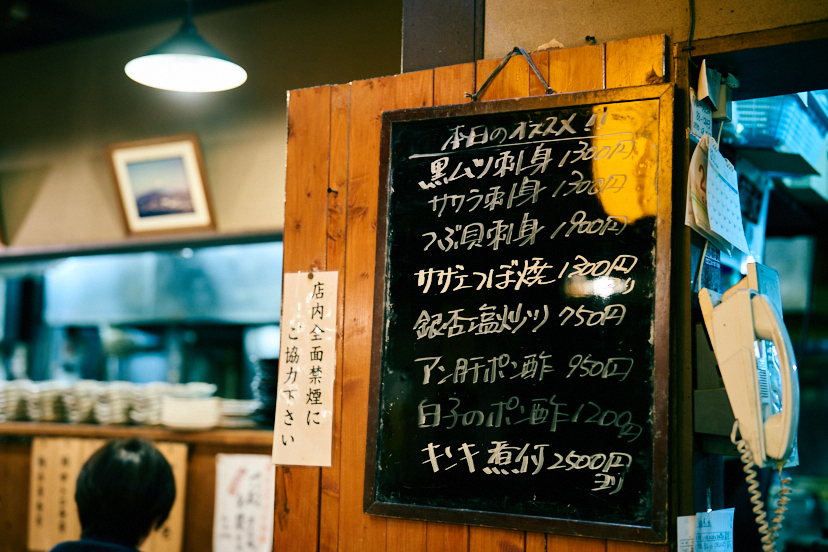 本日のオススメ!!
黒ムツ刺身 1300円
サワラ刺身 1300円
つぶ貝刺身 1900円
サザエつぼ焼 1300円
より
銀杏塩炒り 750円
アン肝ポン酢 950円
白子のポン酢 1200円
キンキ煮付 2500円
より
店内全面禁煙に
ご協力下さい